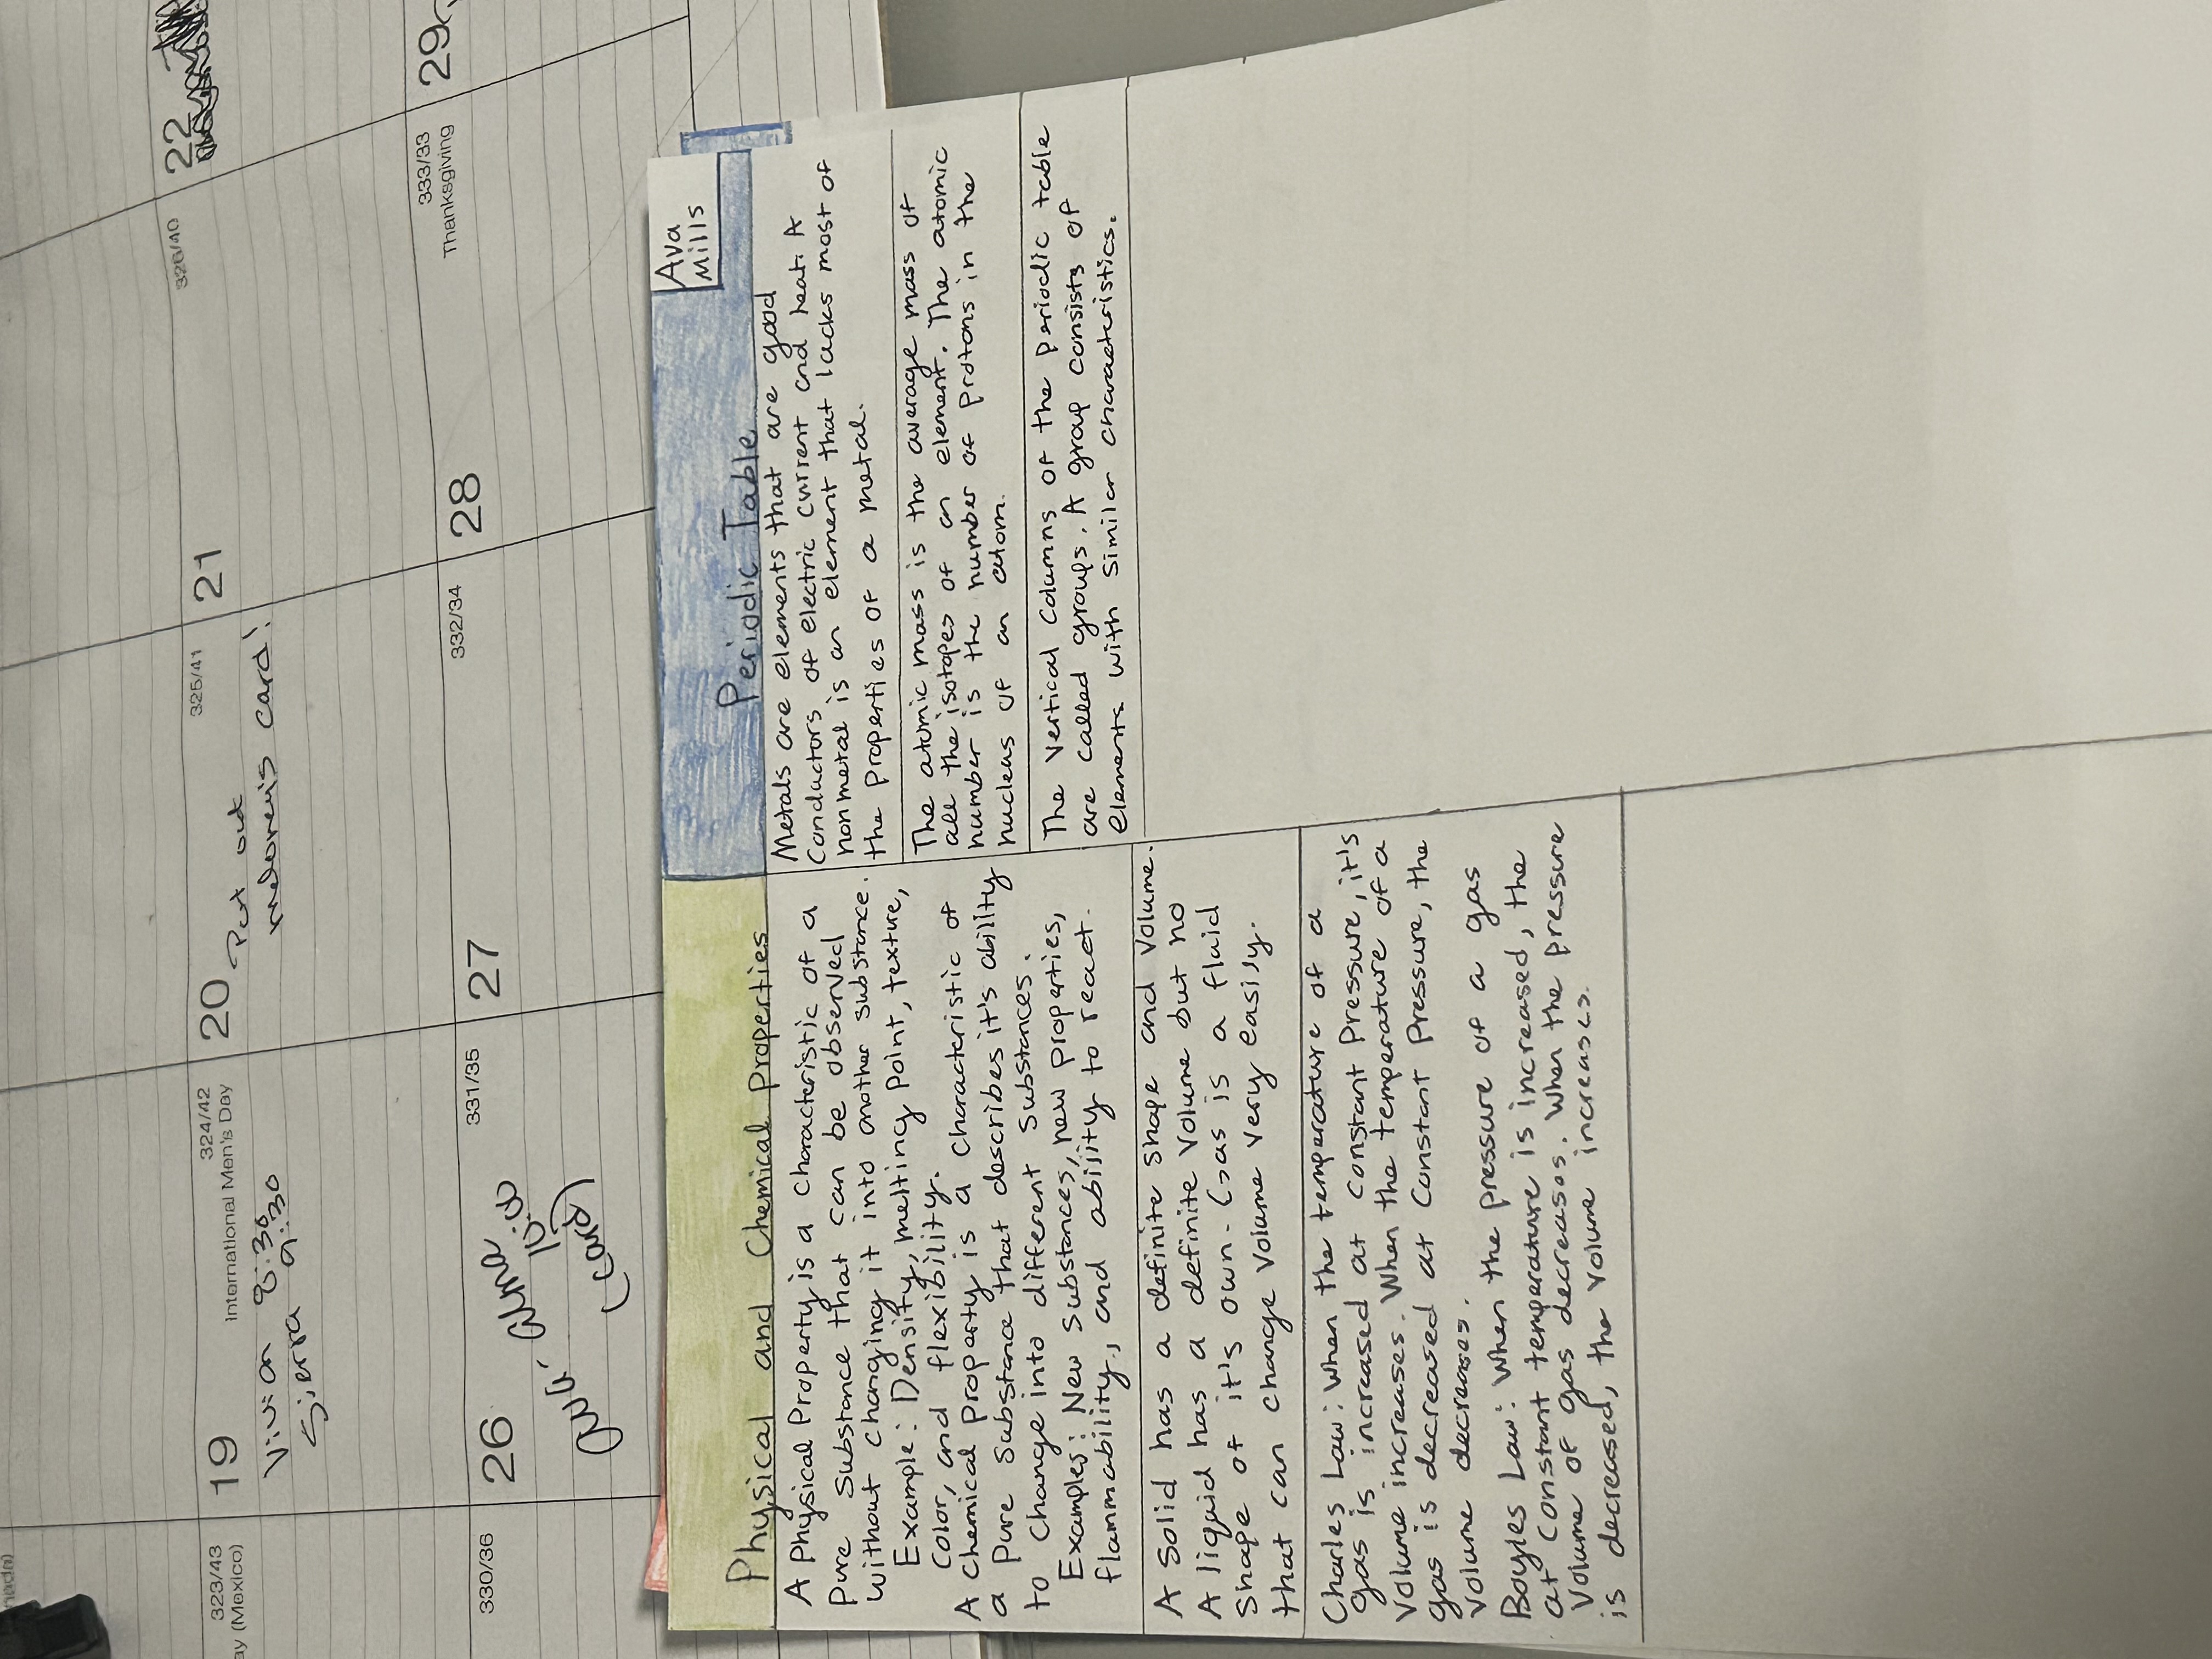 22
29
326/40
333/33
Thanksgiving
21
28
325/41
332/34
20
Put out
card!
27
324/42
International Men's Day
331/35
19
Vivian 8:30
Sierra 9:30
26
(card)
323/43
ay (Mexico)
330/36
Ava
Mills
Physical and Chemical Properties
A Physical Property is a characteristic of a
Pure substance that can be observed
without changing it into another substance.
Example: Density, melting point, texture,
Color, and flexibility.
A Chemical Property is a characteristic of
a pure substance that describes it's ability
to change into different substances.
Examples: New substances, new properties,
flammability, and ability to react.
A solid has a definite shape and volume.
A liquid has a definite volume but no
shape of it's own. Gas is a fluid
that can change volume very easily.
Charles Law: When the temperature of a
gas is increased at constant pressure, it's
volume increases. When the temperature of a
gas is decreased at constant pressure, the
volume decreases.
Boyles Law: When the pressure of a gas
at constant temperature is increased, the
volume of gas decreases. When the pressure
is decreased, the volume increases.
Periodic Table
Metals are elements that are good
conductors of electric current and heat. A
nonmetal is an element that lacks most of
the properties of a metal.
The atomic mass is the average mass of
all the isotopes of an element. The atomic
number is the number of protons in the
nucleus of an atom.
The vertical columns of the periodic table
are called groups. A group consists of
elements with similar characteristics.